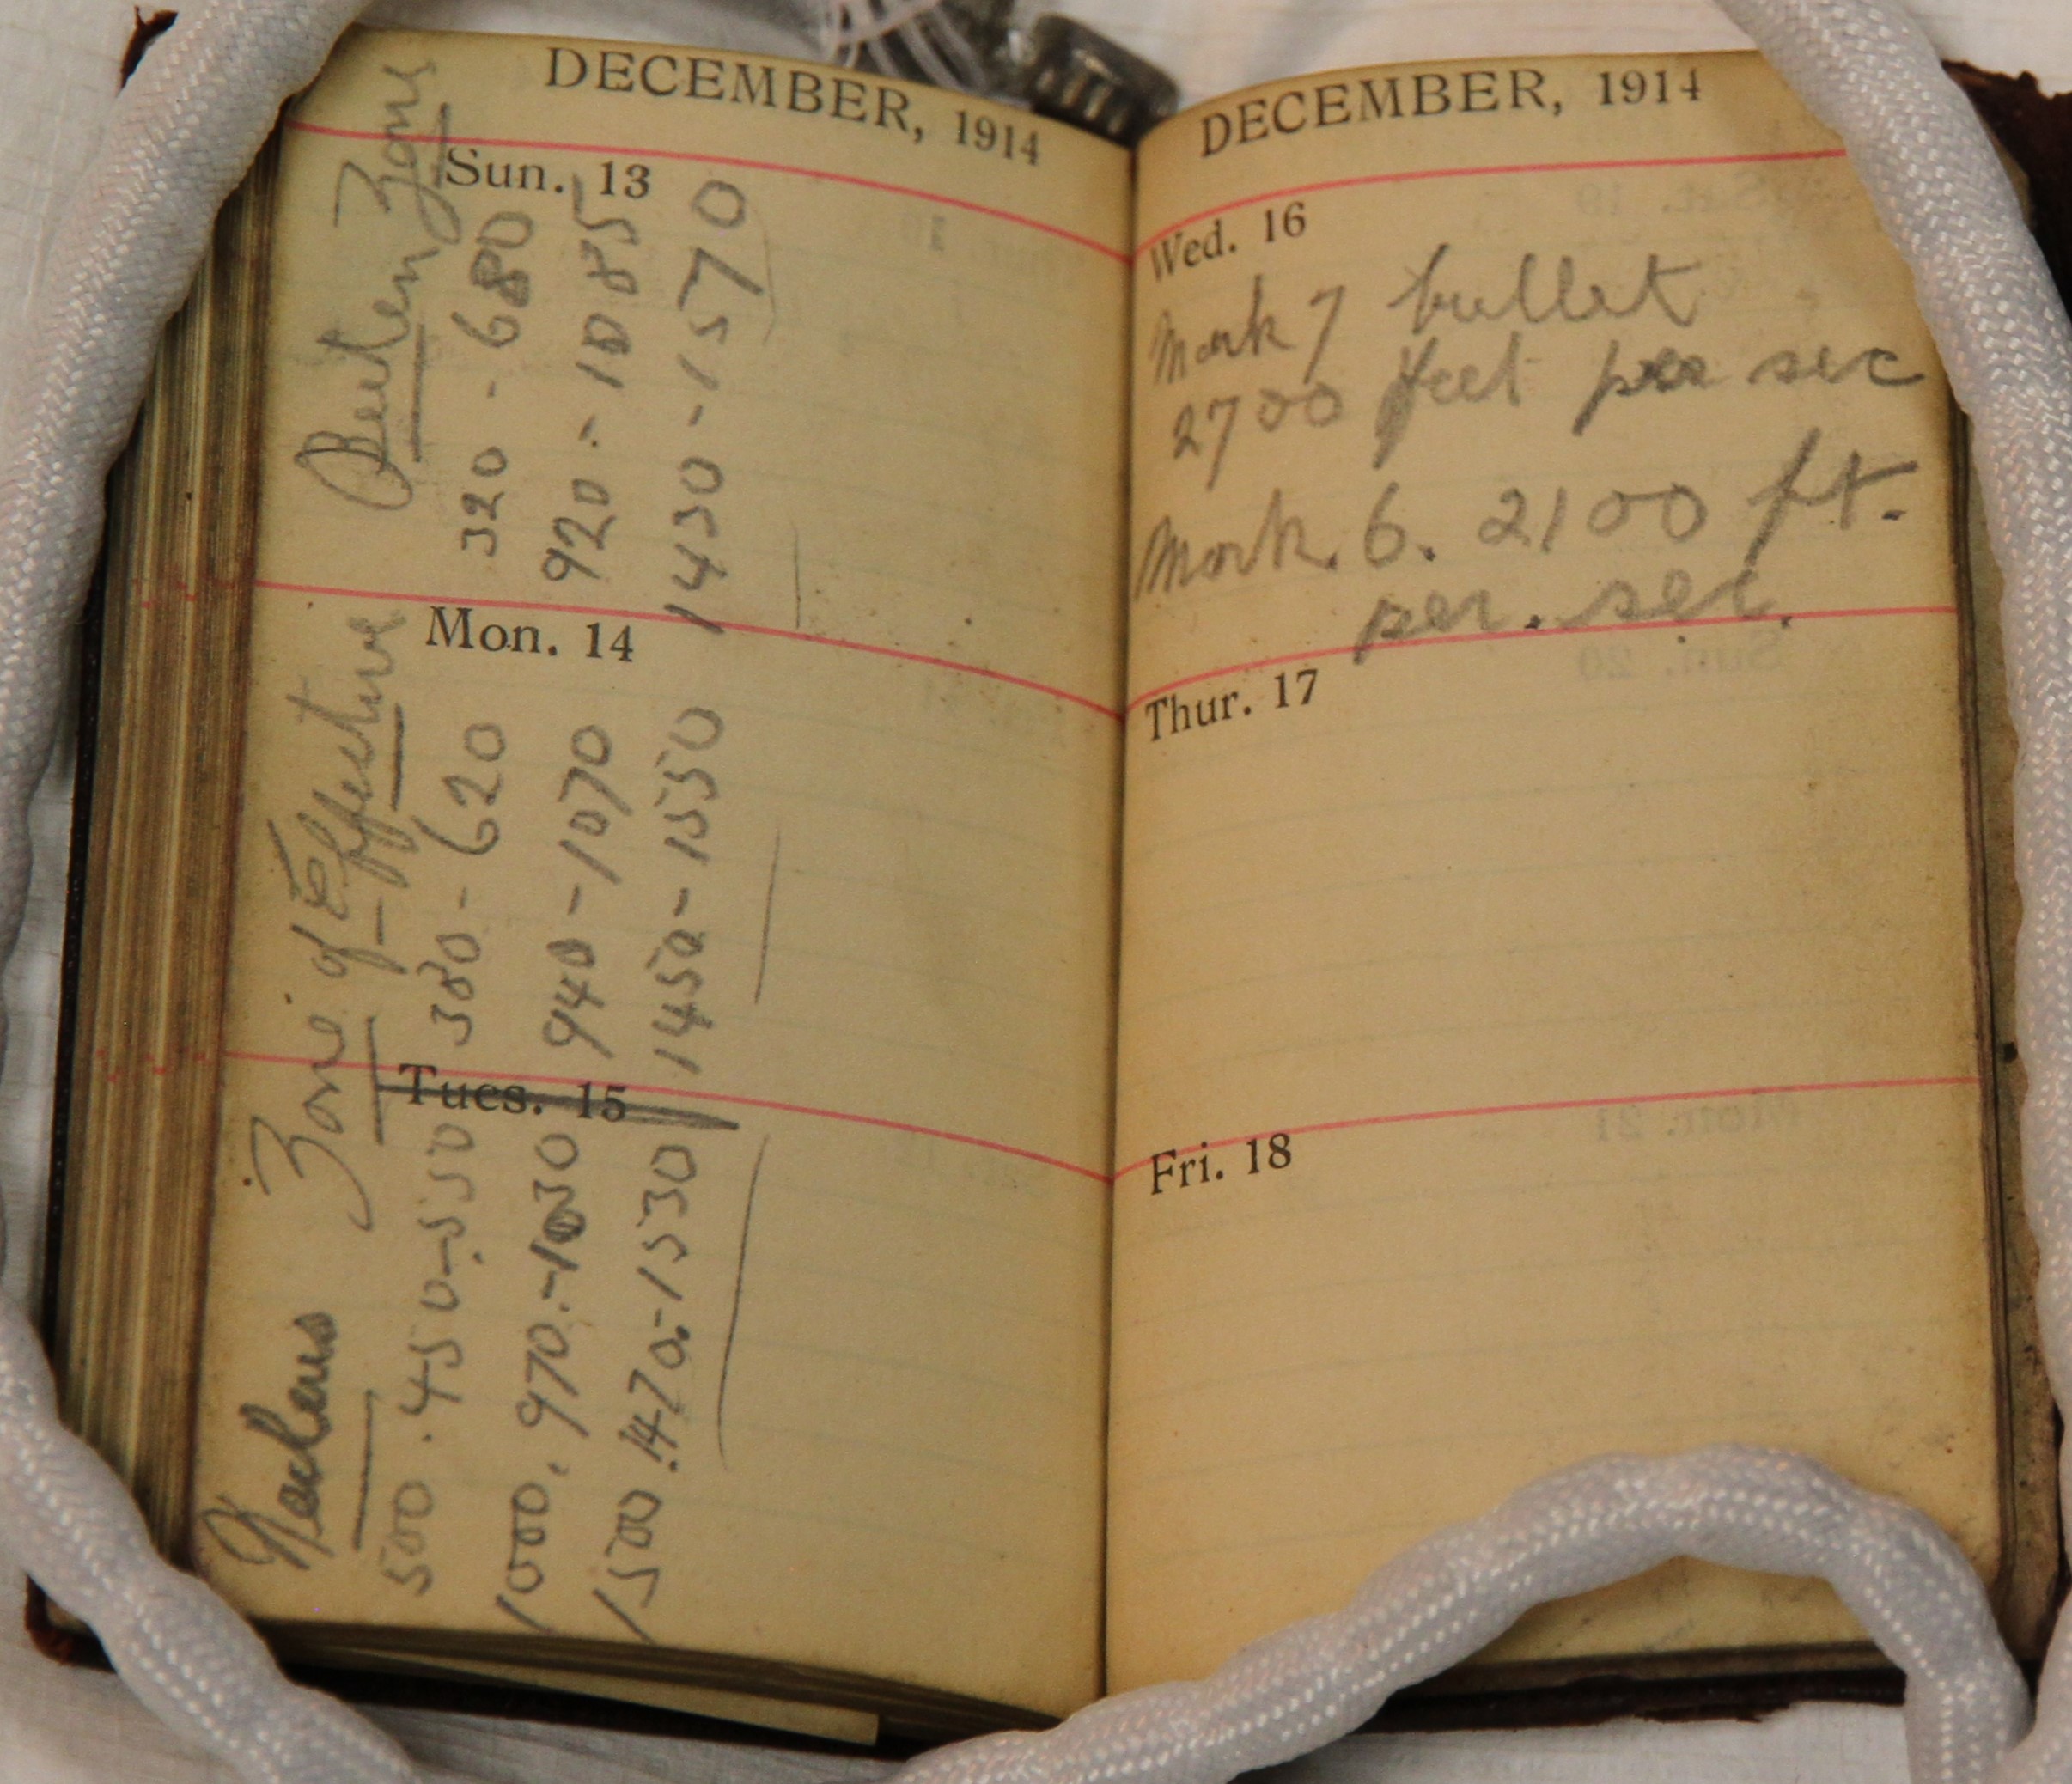 DECEMBER, 1914
Sun. 13
Mon. 14
Tues. 15
Nucleus Zone of Effective Beaten Zone
500 . 450-550 380-620 320-680
1000. 970.-1030 940-1070 920-1085
1500 .1470.-1530 1450-1550 1430-1570
DECEMBER, 1914
Wed. 16
Mark 7 bullet
2700 feet per sec
Mark. 6. 2100 ft.
per. sec.
Thur. 17
Fri. 18